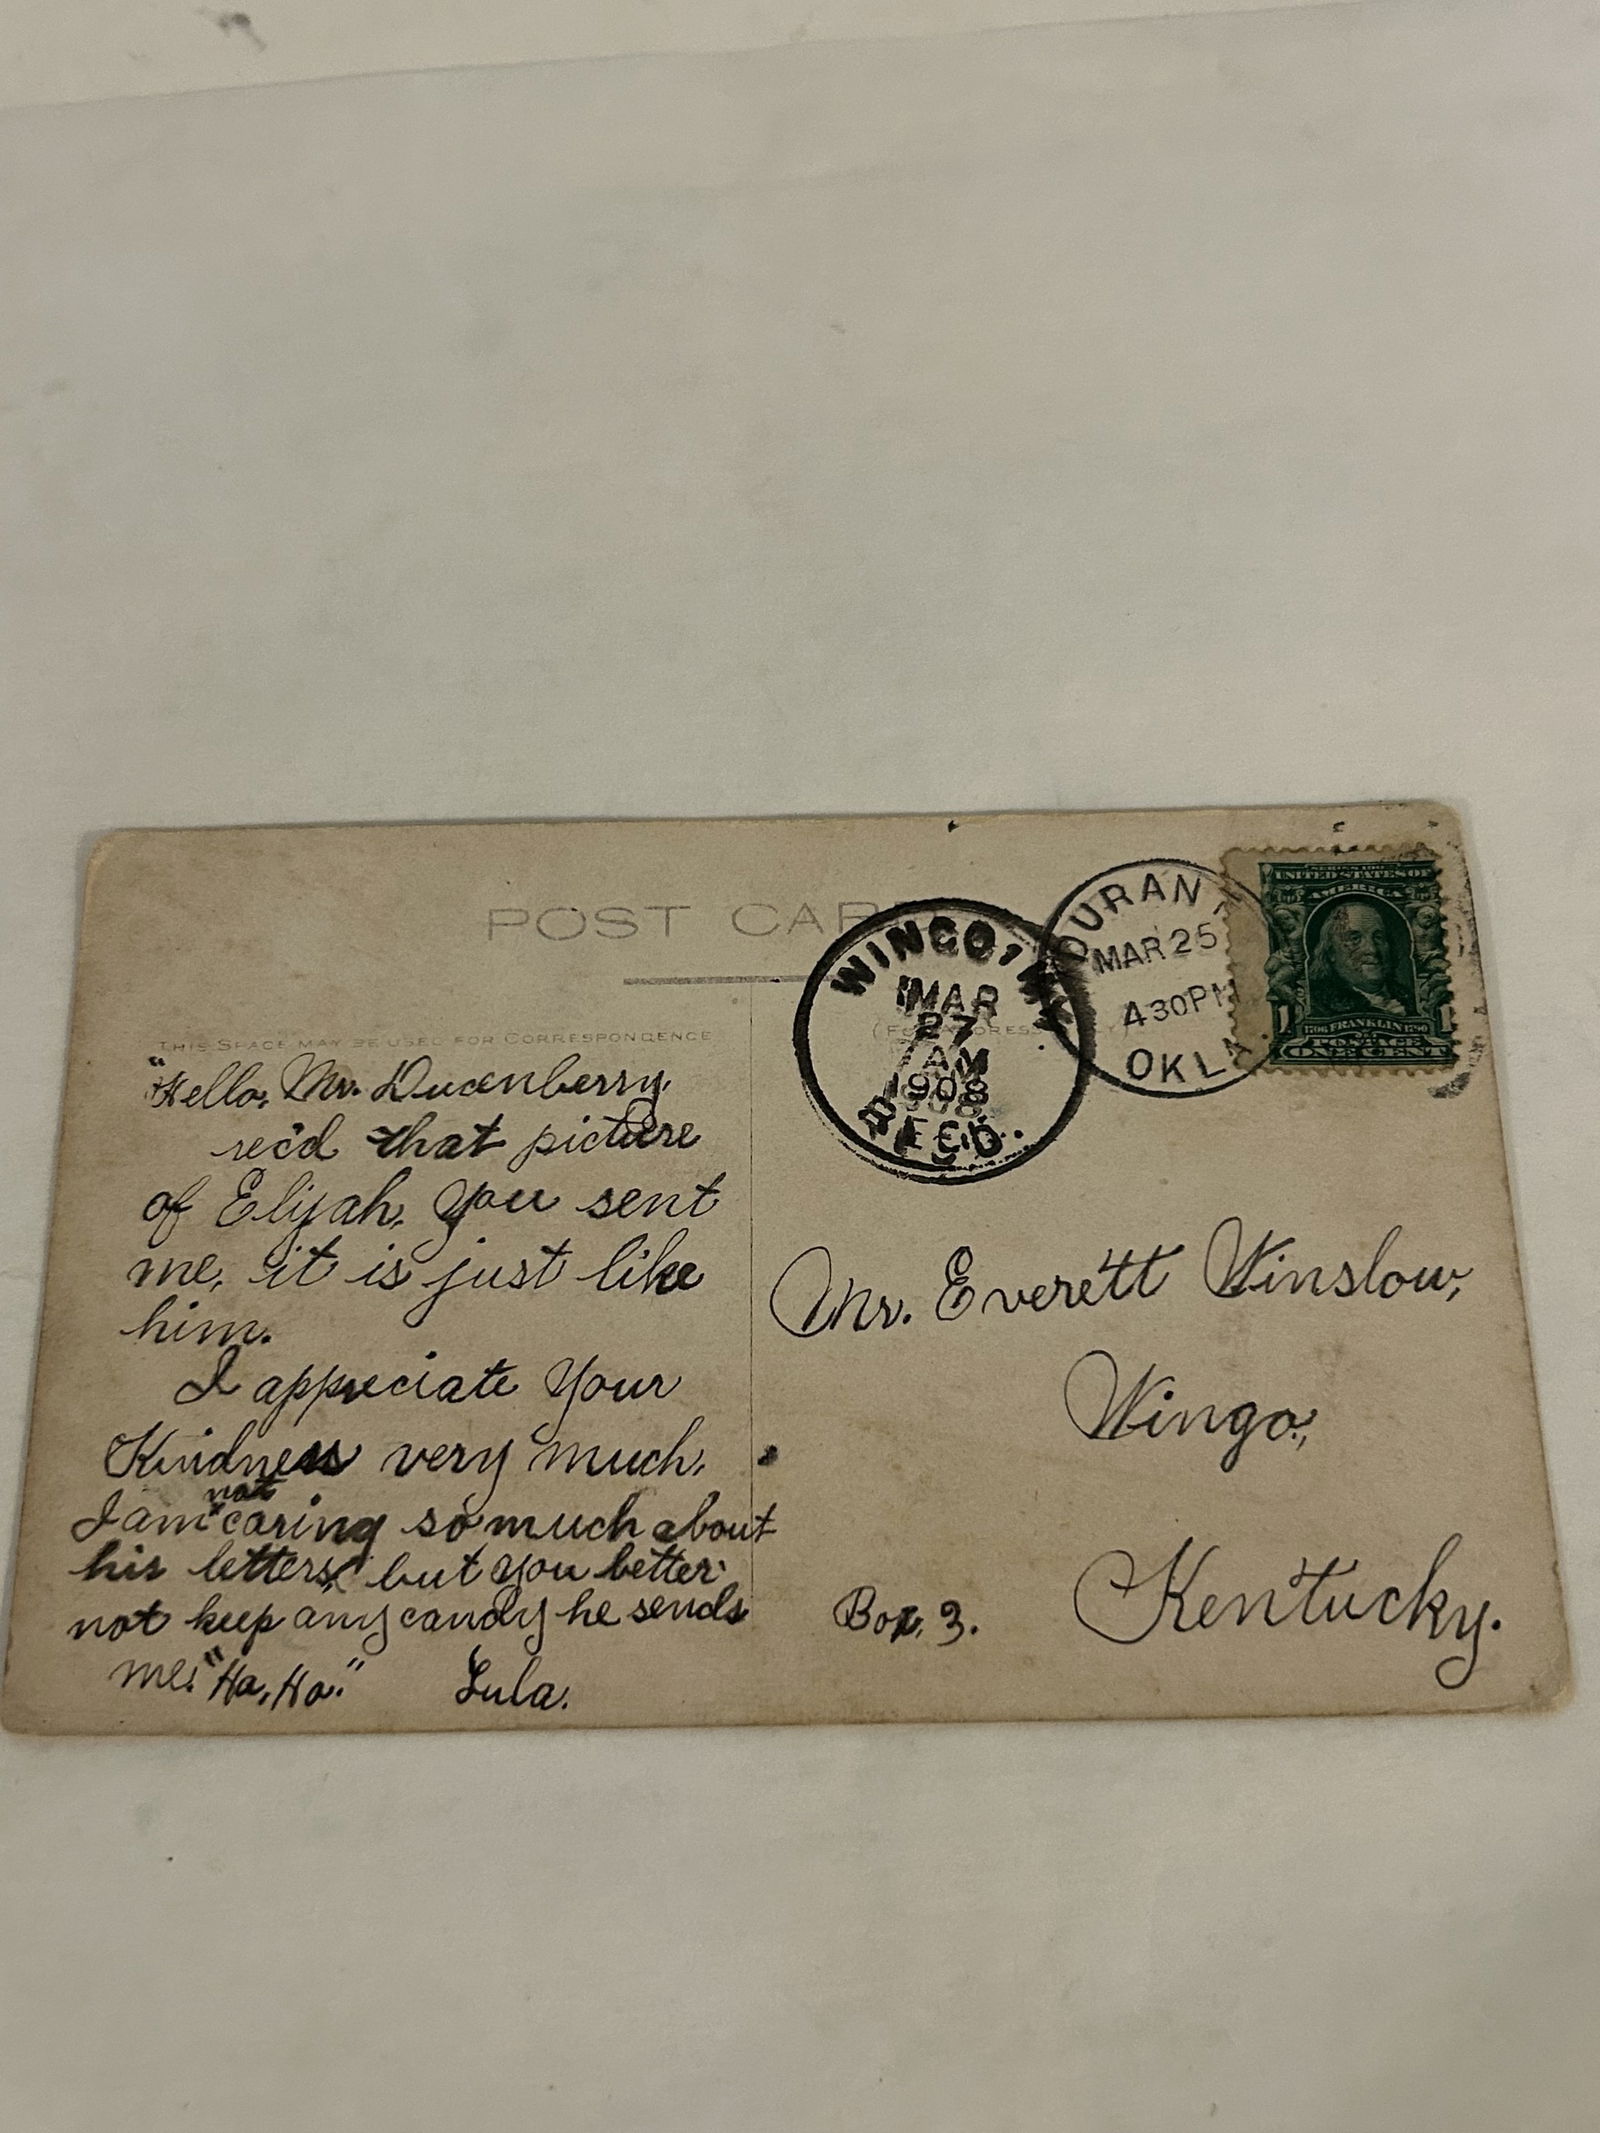 POST CARD
THIS SPACE MAY BE USED FOR CORRESPONDENCE
"Hello, Mr. Ducenberry,
rec'd that picture
of Elijah, You sent
me, it is just like
him.
I appreciate Your
Kindness very much.
not
I am caring so much about
his letters, but you better
not keep any candy he sends
me. "Ha, Ha." Lula.
WINGO
MAR
27
AM
1908
REC'D.
DURANT
MAR 25
430PM
OKLA.
UNITED STATES OF
AMERICA
1706 FRANKLIN 1790
1 1
POSTAGE
ONE CENT
Mr. Everett Winslow,
Wingo,
Kentucky.
Box, 3.